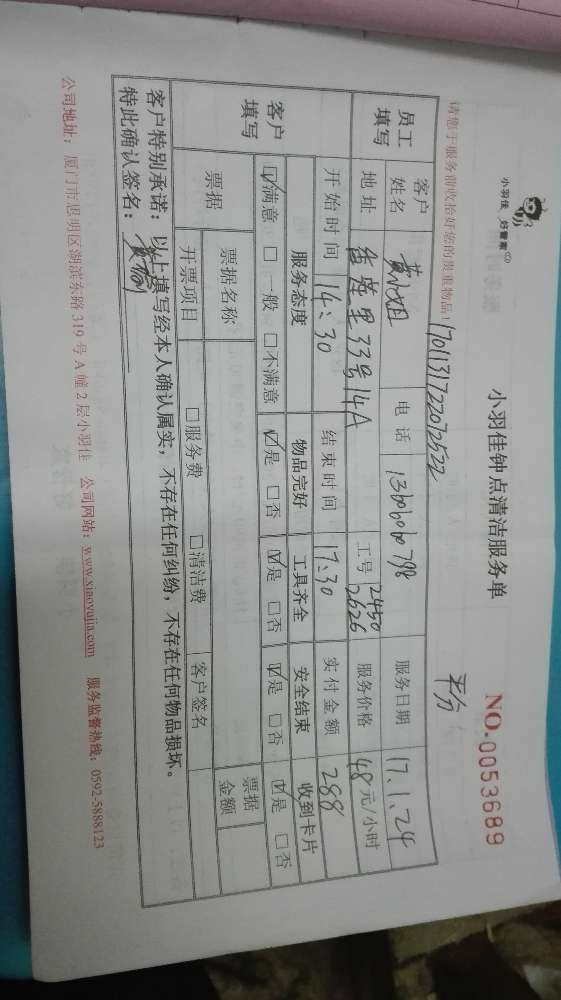 小羽佳 好管家
小羽佳钟点清洁服务单
NO.0053689
请您于服务前收拾好您的贵重物品!
平分
员工填写 客户姓名 黄小姐 电话 13606060798 服务日期 17.1.24
地址 33号14A 工号 2450 2626 服务价格 48元/小时
开始时间 14:30 结束时间 17:30 实付金额 288
客户填写 服务态度 物品完好 工具齐全 安全结束 收到卡片
☑满意 □一般 □不满意 ☑是 □否 ☑是 □否 ☑是 □否 ☑是 □否
票据 票据名称 票据金额
开票项目 □服务费 □清洁费 客户签名
客户特别承诺:以上填写经本人确认属实,不存在任何纠纷,不存在任何物品损坏。
特此确认签名:
公司地址:厦门市思明区湖滨东路 319 号 A 幢 2 层小羽佳 公司网站:www.xiaoyujia.com 服务监督热线:0592-5888123